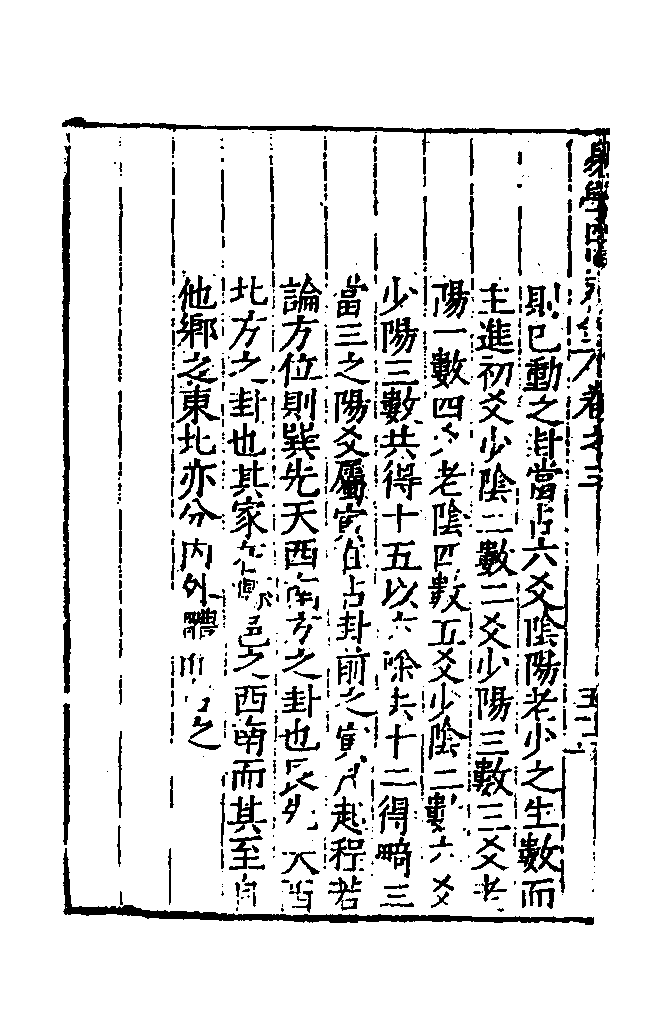 易學
卷之三
則已動之卦當占六爻陰陽老少之生數而
主進初爻少陰二數二爻少陽三數三爻老
陽一數四爻老陰四數五爻少陰二數六爻
少陽三數共得十五以六除去十二得畸三
當三之陽爻屬寅在占卦前之寅月起程若
論方位則巽先天西南方之卦也艮先天西
北方之卦也其家在 邑之西南而其至自
他鄉之東北亦分內外體 之